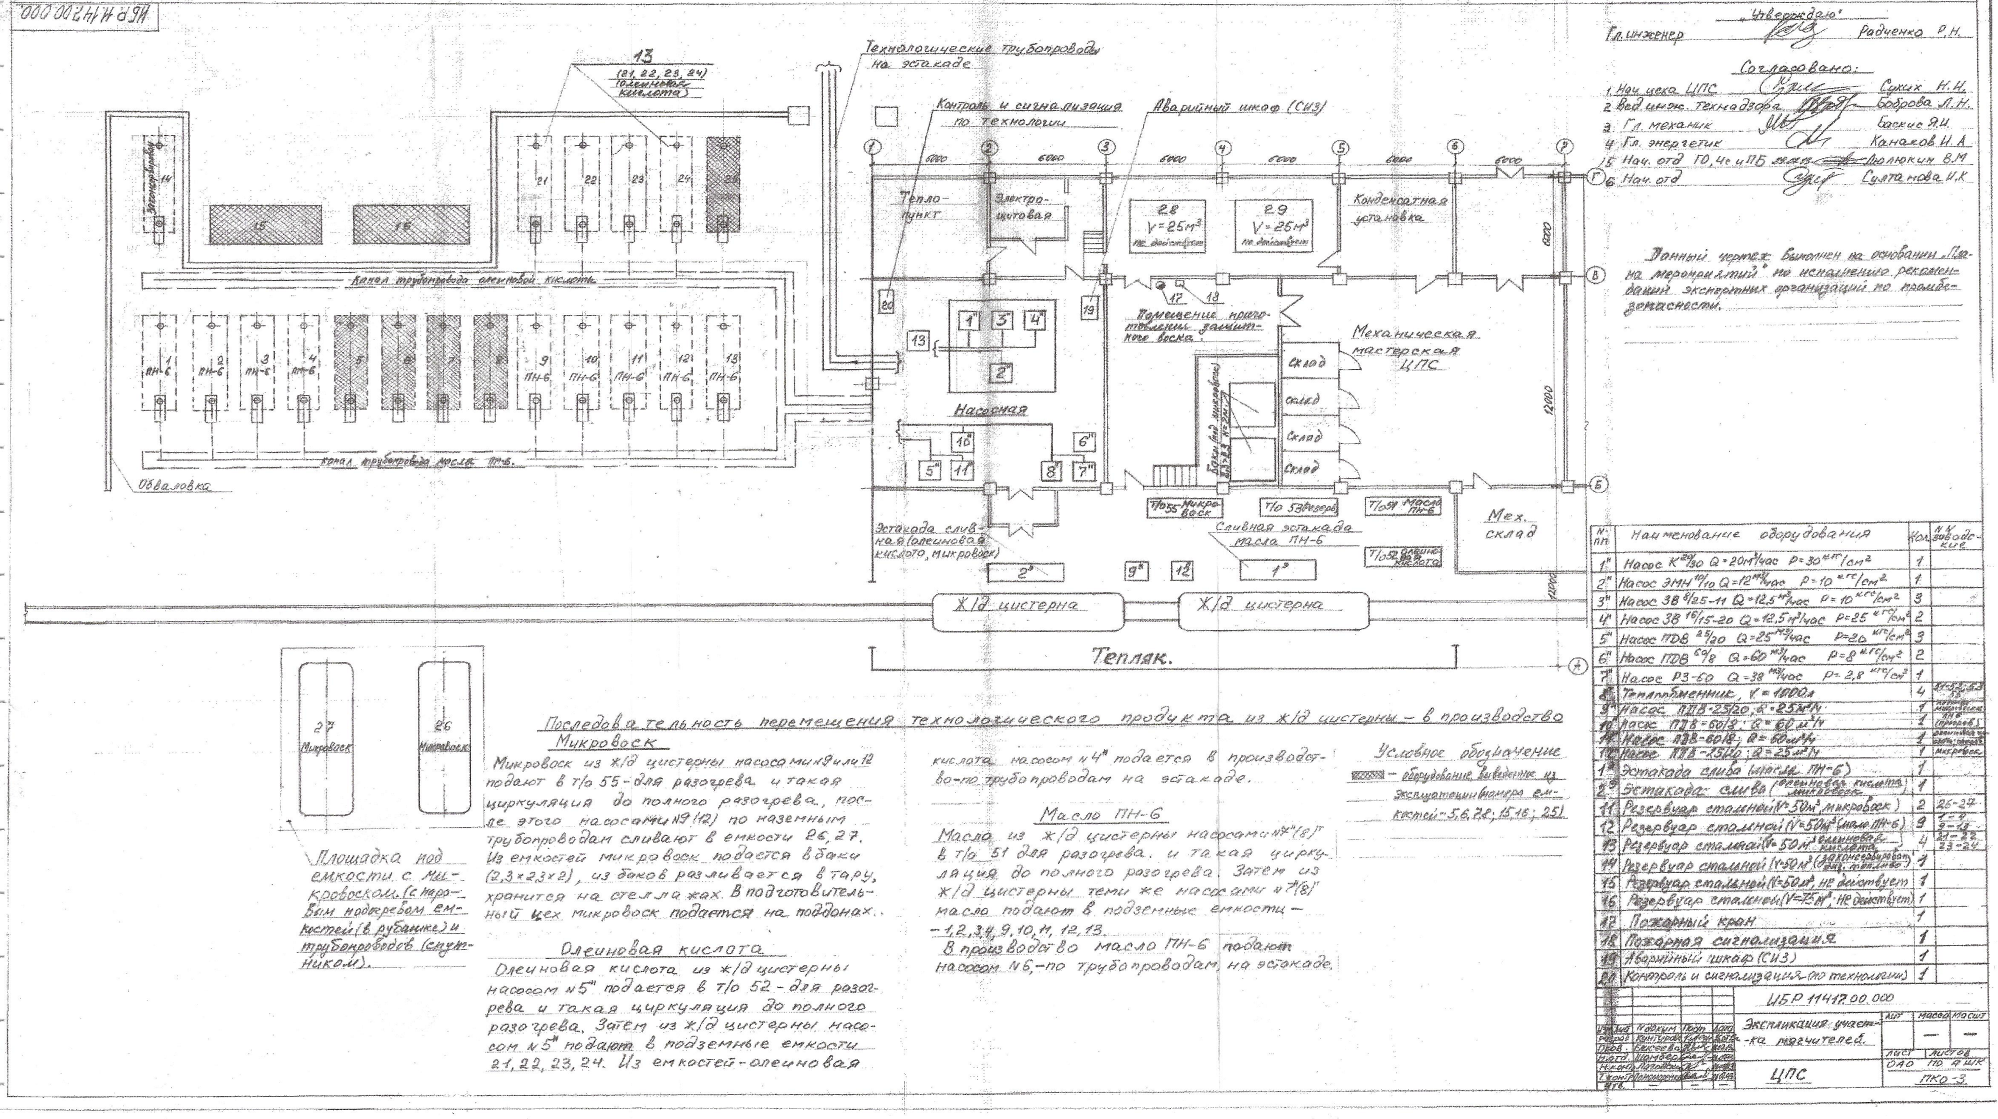 ЦБР 11417.00.000
„Утверждаю"
Гл. инженер Радченко Р.Н.
Согласовано:
1. Нач цеха ЦПС Сухих Н.Н.
2 Вед. инж. технадзора Боброва Л.Н.
3 Гл. механик Баскис Я.И.
4 Гл. энергетик Канаков И.А
5 Нач. отд ГО, ЧС и ПБ Люлюкин В.М
6 Нач. отд Султанова И.К
Данный чертеж выполнен на основании „Пла-
на мероприятий" по исполнению рекомен-
даций экспертных организаций по промбе-
зопасности.
13
(21, 22, 23, 24)
(олеиновая
кислота)
Технологические трубопроводы
на эстакаде
Контроль и сигнализация
по технологии
Аварийный шкаф (СИЗ)
1 2 3 4 5 6 7
6000 6000 6000 6000 6000 6000
Г
В
Б
А
6000
12000
12000
14
15
16
21
22
23
24
25
Канал трубопровода олеиновой кислоты
1 ПН-6
2 ПН-6
3 ПН-6
4 ПН-6
5
6
7
8
9 ПН-6
10 ПН-6
11 ПН-6
12 ПН-6
13 ПН-6
Канал трубопровода масла ПН-6.
Обваловка
Тепло-
пункт
Электро-
щитовая
28
V = 25м³
не действует
29
V = 25м³
не действует
Конденсатная
установка
20
13
1"
3"
4"
2"
19
17
18
Помещение приго-
товления защит-
ного воска.
Механическая
мастерская
ЦПС
Насосная
10"
5"
11"
8"
6"
7"
Склад
Склад
Склад
Склад
Т/о 55 - Микро-
воск
Т/о 53 (Резерв)
Т/о 51 Масло
ПН-6
Т/о 52 Олеино-
вая
кислота
Мех.
склад
Эстакада слив-
ная (олеиновая
кислота, микровоск)
Сливная эстакада
масла ПН-6
2"
9"
12"
1"
Ж/д цистерна
Ж/д цистерна
Тепляк.
27
Микровоск
26
Микровоск
Площадка под
емкости с ми-
кровоском. (с паро-
вым подогревом ем-
костей (в рубашке) и
трубопроводов (спут-
ником).
Последовательность перемещения технологического продукта из ж/д цистерны – в производство
Микровоск
Микровоск из ж/д цистерны насосами №9 или 12
подают в т/о 55 - для разогрева и такая
циркуляция до полного разогрева, пос-
ле этого насосами №9 (12) по наземным
трубопроводам сливают в емкости 26, 27.
Из емкостей микровоск подается в баки
(2,3×2,3×2), из баков разливается в тару,
хранится на стеллажах. В подготовитель-
ный цех микровоск подается на поддонах.
Олеиновая кислота
Олеиновая кислота из ж/д цистерны
насосом №5" подается в т/о 52 - для разог-
рева и такая циркуляция до полного
разогрева. Затем из ж/д цистерны насо-
сом №5" подают в подземные емкости
21, 22, 23, 24. Из емкостей - олеиновая
кислота насосом №4" подается в производст-
во - по трубопроводам на эстакаде.
Масло ПН-6
Масло из ж/д цистерны насосами №7"(8)"
в т/о 51 для разогрева. и такая цирку-
ляция до полного разогрева. Затем из
ж/д цистерны теми же насосами №7"(8)"
масло подают в подземные емкости –
- 1, 2, 3, 4, 9, 10, 11, 12, 13.
В производство масло ПН-6 подают
насосом №6, - по трубопроводам на эстакаде.
Условное обозначение
– оборудование выведенное из
эксплуатации (номера ем-
костей - 5, 6, 7, 8; 15, 16; 25)
№ пп Наименование оборудования Кол. №№ заводс-кие
1" Насос К 20/30 Q = 20м³/час Р = 30 кгс/см² 1
2" Насос ЭМН 10/10 Q = 12 м³/час Р = 10 кгс/см² 1
3" Насос 3В 8/25-11 Q = 12,5 м³/час Р = 10 кгс/см² 3
4" Насос 3В 16/15-20 Q = 12,5 м³/час Р = 25 кгс/см² 2
5" Насос ПДВ 25/20 Q = 25 м³/час Р = 20 кгс/см² 3
6" Насос ПДВ 60/8 Q = 60 м³/час Р = 8 кгс/см² 2
7" Насос РЗ-60 Q = 38 м³/час Р = 2,8 кгс/см² 1
8" Теплообменник, V = 1000л 4
9" Насос ПДВ-25/20; Q = 25м³/ч 1
10" Насос ПДВ-60/8; Q = 60 м³/ч 1
11" Насос ПДВ-60/8; Q = 60м³/ч 1
12" Насос ПДВ-25/20; Q = 25м³/ч 1 микровоск
1" Эстакада слива (масла ПН-6) 1
2" Эстакада слива (олеиновая кислота микровоск) 1
11 Резервуар стальной (V = 50м³, микровоск) 2 26-27
12 Резервуар стальной (V = 50м³ (масло ПН-6) 9 1-4 9-13
13 Резервуар стальной (V = 50м³ олеиновая кислота) 4 21-22 23-24
14 Резервуар стальной (V = 50м³ (законсервирован) 1
15 Резервуар стальной (V = 50м³, не действует) 1
16 Резервуар стальной (V = 75м³, не действует) 1
17 Пожарный кран 1
18 Пожарная сигнализация 1
19 Аварийный шкаф (СИЗ) 1
20 Контроль и сигнализация (по технологии) 1
ЦБР 11417.00.000
Экспликация участ-
ка мягчителей.
лит масса масшт
— —
лист листов
ЦПС
ОАО ПО АШК
ПКО-3